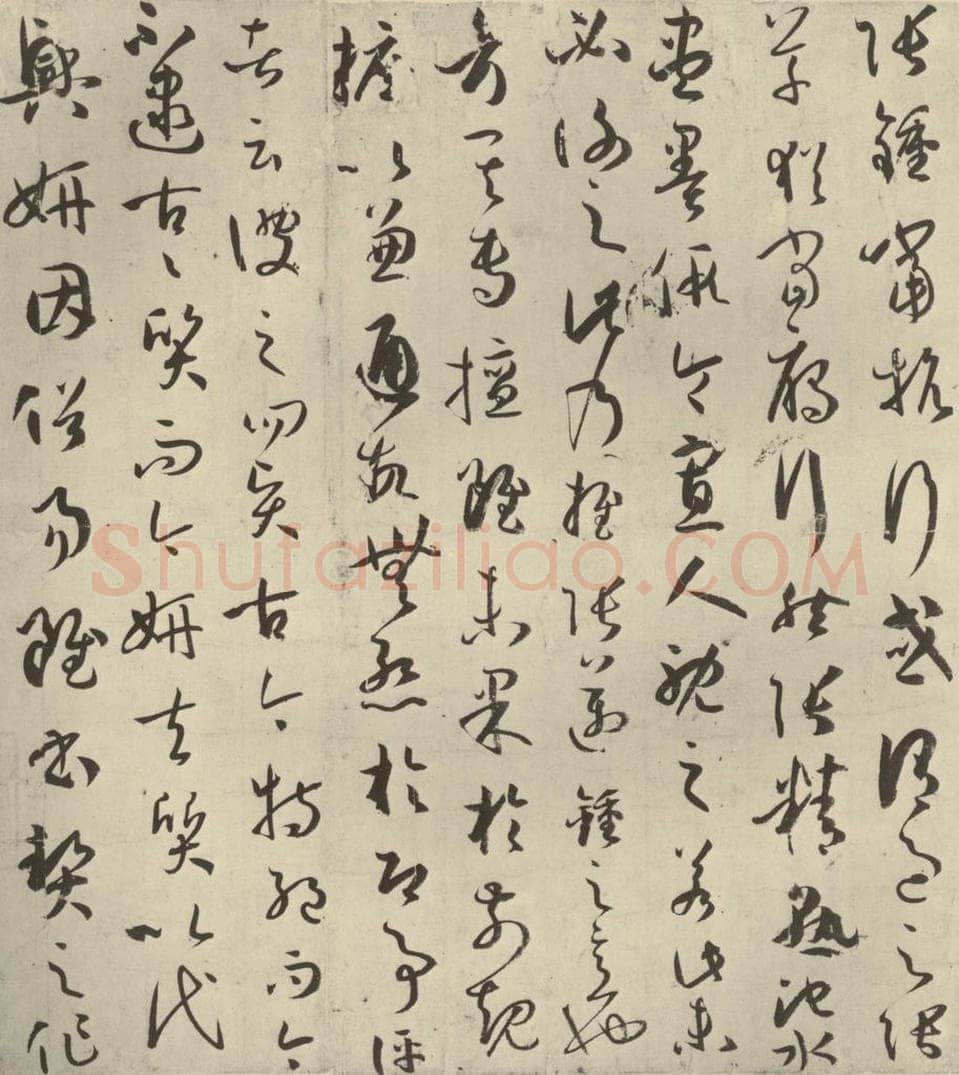 張鍾當抗行或謂過之張
草猶當鴈行然張精熟池水
盡墨假令寡人耽之若此未
必謝之此乃推張邁鍾之意也
考其專擅雖未果於前規
摭以兼通故無慚於即事評
者云彼之四賢古今特絕而今
不逮古〻質而今妍夫質以代
興妍因俗易雖書契之作
Shufaziliao.COM